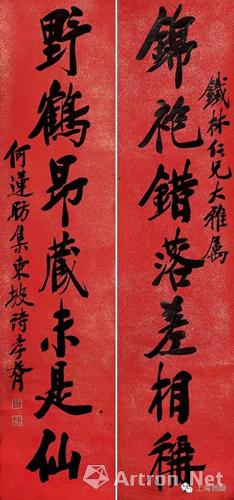 鐵林仁兄大雅屬
錦袍錯落差相稱
野鶴昂藏未是仙
何蓮舫集東坡詩孝胥
上海驰翰
Artron.Net